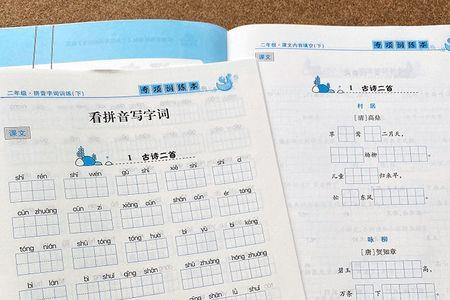 二年级·拼音字词训练(下) 专项训练本
看拼音写字词
课文
1 古诗二首
shī rén shī wén gǔ shī xiě shī
cūn zhuāng cūn zi xiāng cūn shān cūn ér tóng
tóng nián tóng bì yù bì kōng
zhuāng bì shuǐ qīng shān
二年级·课文内容填空(下) 专项训练本
1 古诗二首
村居
[清]高鼎
草 莺 二月天，
杨柳 。
儿童 归来早，
忙 东风 。
咏柳
[唐]贺知章
碧玉 高，
万条 下